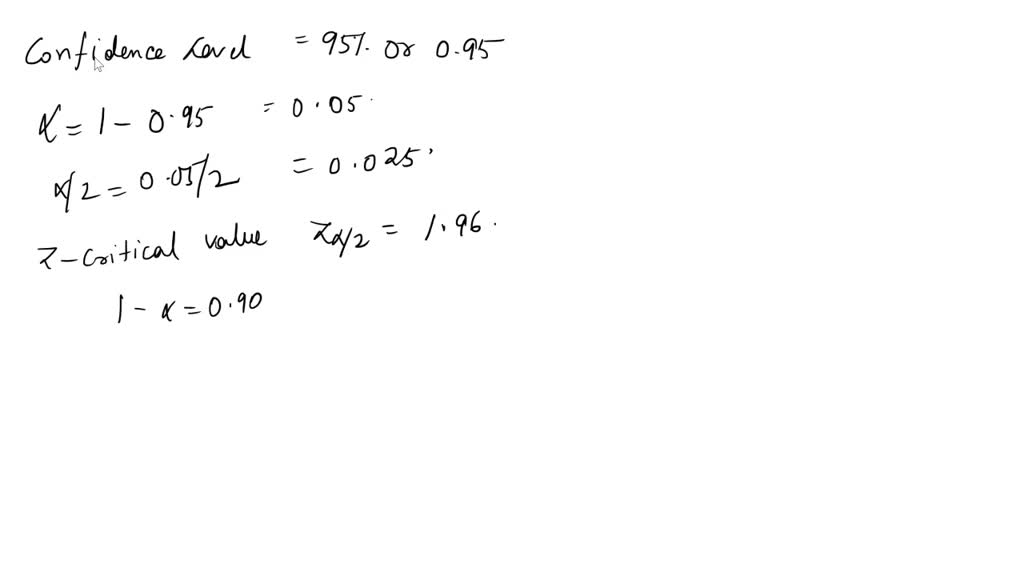 Confidence Level = 95% or 0.95
α = 1 - 0.95 = 0.05
α/2 = 0.05/2 = 0.025
Z-Critical value Zα/2 = 1.96.
1 - α = 0.90